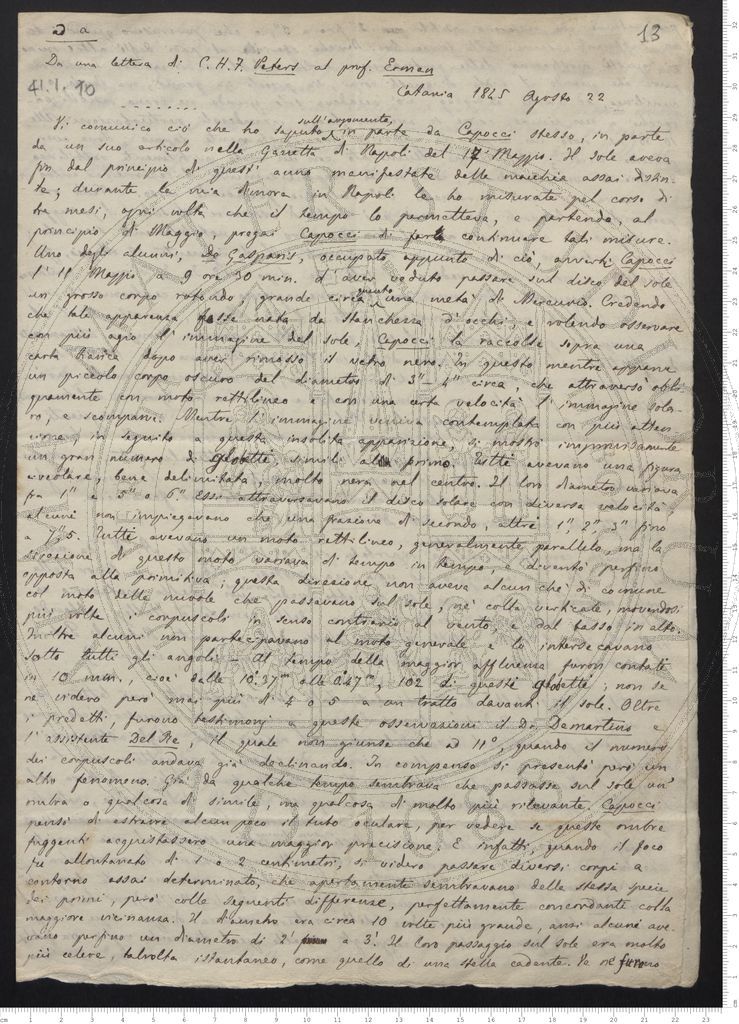 a
13
Da una lettera di C. H. F. Peters al prof. Erman
41.1.10
Catania 1845 Agosto 22
sull'argomento,
Vi comunico ciò che ho saputo in parte da Capocci stesso, in parte
da un suo articolo nella Gazzetta di Napoli del 17 Maggio. Il sole aveva
fin dal principio di quest' anno manifestate delle macchie assai distin-
te; durante la mia dimora in Napoli le ho misurate pel corso di
tre mesi, ogni volta che il tempo lo permetteva, e partendo, al
principio di Maggio, pregai Capocci di far continuare tali misure.
Uno degli alunni, De Gasparis, occupato appunto di ciò, avvertì Capocci
l' 11 Maggio a 9 ore 30 min. d'aver veduto passare sul disco del sole
un grosso corpo rotondo, grande circa quanto una metà di Mercurio. Credendo
che tale apparenza fosse nata da stanchezza d'occhi, e volendo osservare
con più agio l'immagine del sole, Capocci la raccolse sopra una
carta bianca dopo aver rimosso il vetro nero. In questo mentre apparve
un piccolo corpo oscuro del diametro di 3"–4" circa, che attraversò obli-
quamente con moto rettilineo e con una certa velocità l'immagine sola-
re, e scomparve. Mentre l'immagine veniva contemplata con più atten-
zione, in seguito a questa insolita apparizione, si mostrò improvvisamente
un gran numero di globetti, simili al primo. Tutti avevano una figura
circolare, bene delimitata, molto nera nel centro. Il loro diametro variava
fra 1" e 5" o 6". Essi attraversavano il disco solare con diversa velocità
alcuni non impiegavano che una frazione di secondo, altri 1", 2", 3" fino
a 7",5. Tutti avevano un moto rettilineo, generalmente parallelo, ma la
direzione di questo moto variava di tempo in tempo, e diventò perfino
opposta alla primitiva; questa direzione non aveva alcun chè di comune
col moto delle nuvole che passavano sul sole, nè colla verticale, movendosi
più volte i corpuscoli in senso contrario al vento, e dal basso in alto.
Inoltre alcuni non partecipavano al moto generale e lo intersecavano
sotto tutti gli angoli – Al tempo della maggior affluenza furon contati
in 10 min., cioè dalle 10.37m alle 0.47m, 102 di questi globetti; non se
ne videro però mai più di 4 o 5 a un tratto davanti il sole. Oltre
i predetti, furono testimonj a queste osservazioni il Dr. Demartino e
l'assistente Del Re, il quale non giunse che ad 11°, quando il numero
dei corpuscoli andava già declinando. In compenso si presentò però un
altro fenomeno. Già da qualche tempo sembrava che passasse sul sole un'
ombra o qualcosa di simile, ma qualcosa di molto più rilevante. Capocci
pensò di estrarre alcun poco il tubo oculare, per vedere se queste ombre
fuggenti acquistassero una maggior precisione. E infatti, quando il foco
fu allontanato di 1 o 2 centimetri, si videro passare diversi corpi a
contorno assai determinato, che apertamente sembravano della stessa specie
dei primi, però colle seguenti differenze, perfettamente concordante colla
maggiore vicinanza. Il diametro era circa 10 volte più grande, anzi alcuni ave-
vano perfino un diametro di 2' a 3'. Il loro passaggio sul sole era molto
più celere, talvolta istantaneo, come quello di una stella cadente. Ve ne furono